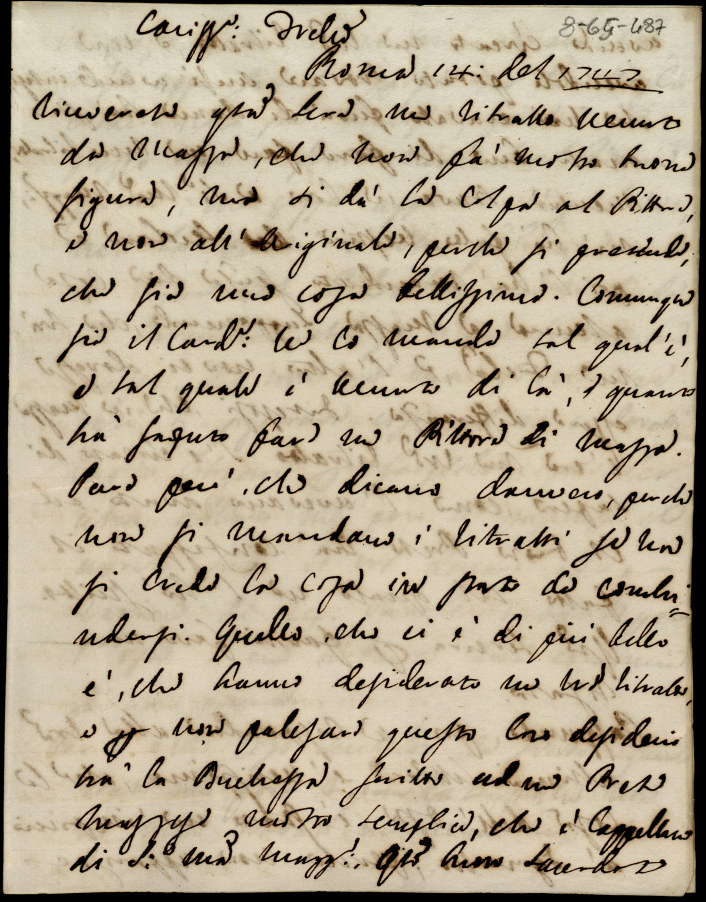 8-65-487
Cariss.o Frello
Roma 14: del 1747
Riceverete q.ta sera un ritratto venuto
da Massa, che non fa molto buona
figura, ma si dà la colpa al Pittore,
e non all'Originale, perche si pretende,
che sia una cosa bellissima. Comunque
sia il Card.l: ve lo manda tal qual'è,
e tal quale è venuto di là, e quanto
hà saputo fare un Pittore di Massa.
Pare però, che dicano davvero, perche
non si mandano i ritratti se non
si crede la cosa in stato da conchiu=
udersi. Quello, che ci è di più bello
è, che hanno desiderato un v.ro ritratto,
e p non palesare questo loro desiderio
hà la Duchessa scritto ad un Prete
molto semplice, che è Cappellano
di S.a M.a Magg.e: Q.to buon Sacerdote